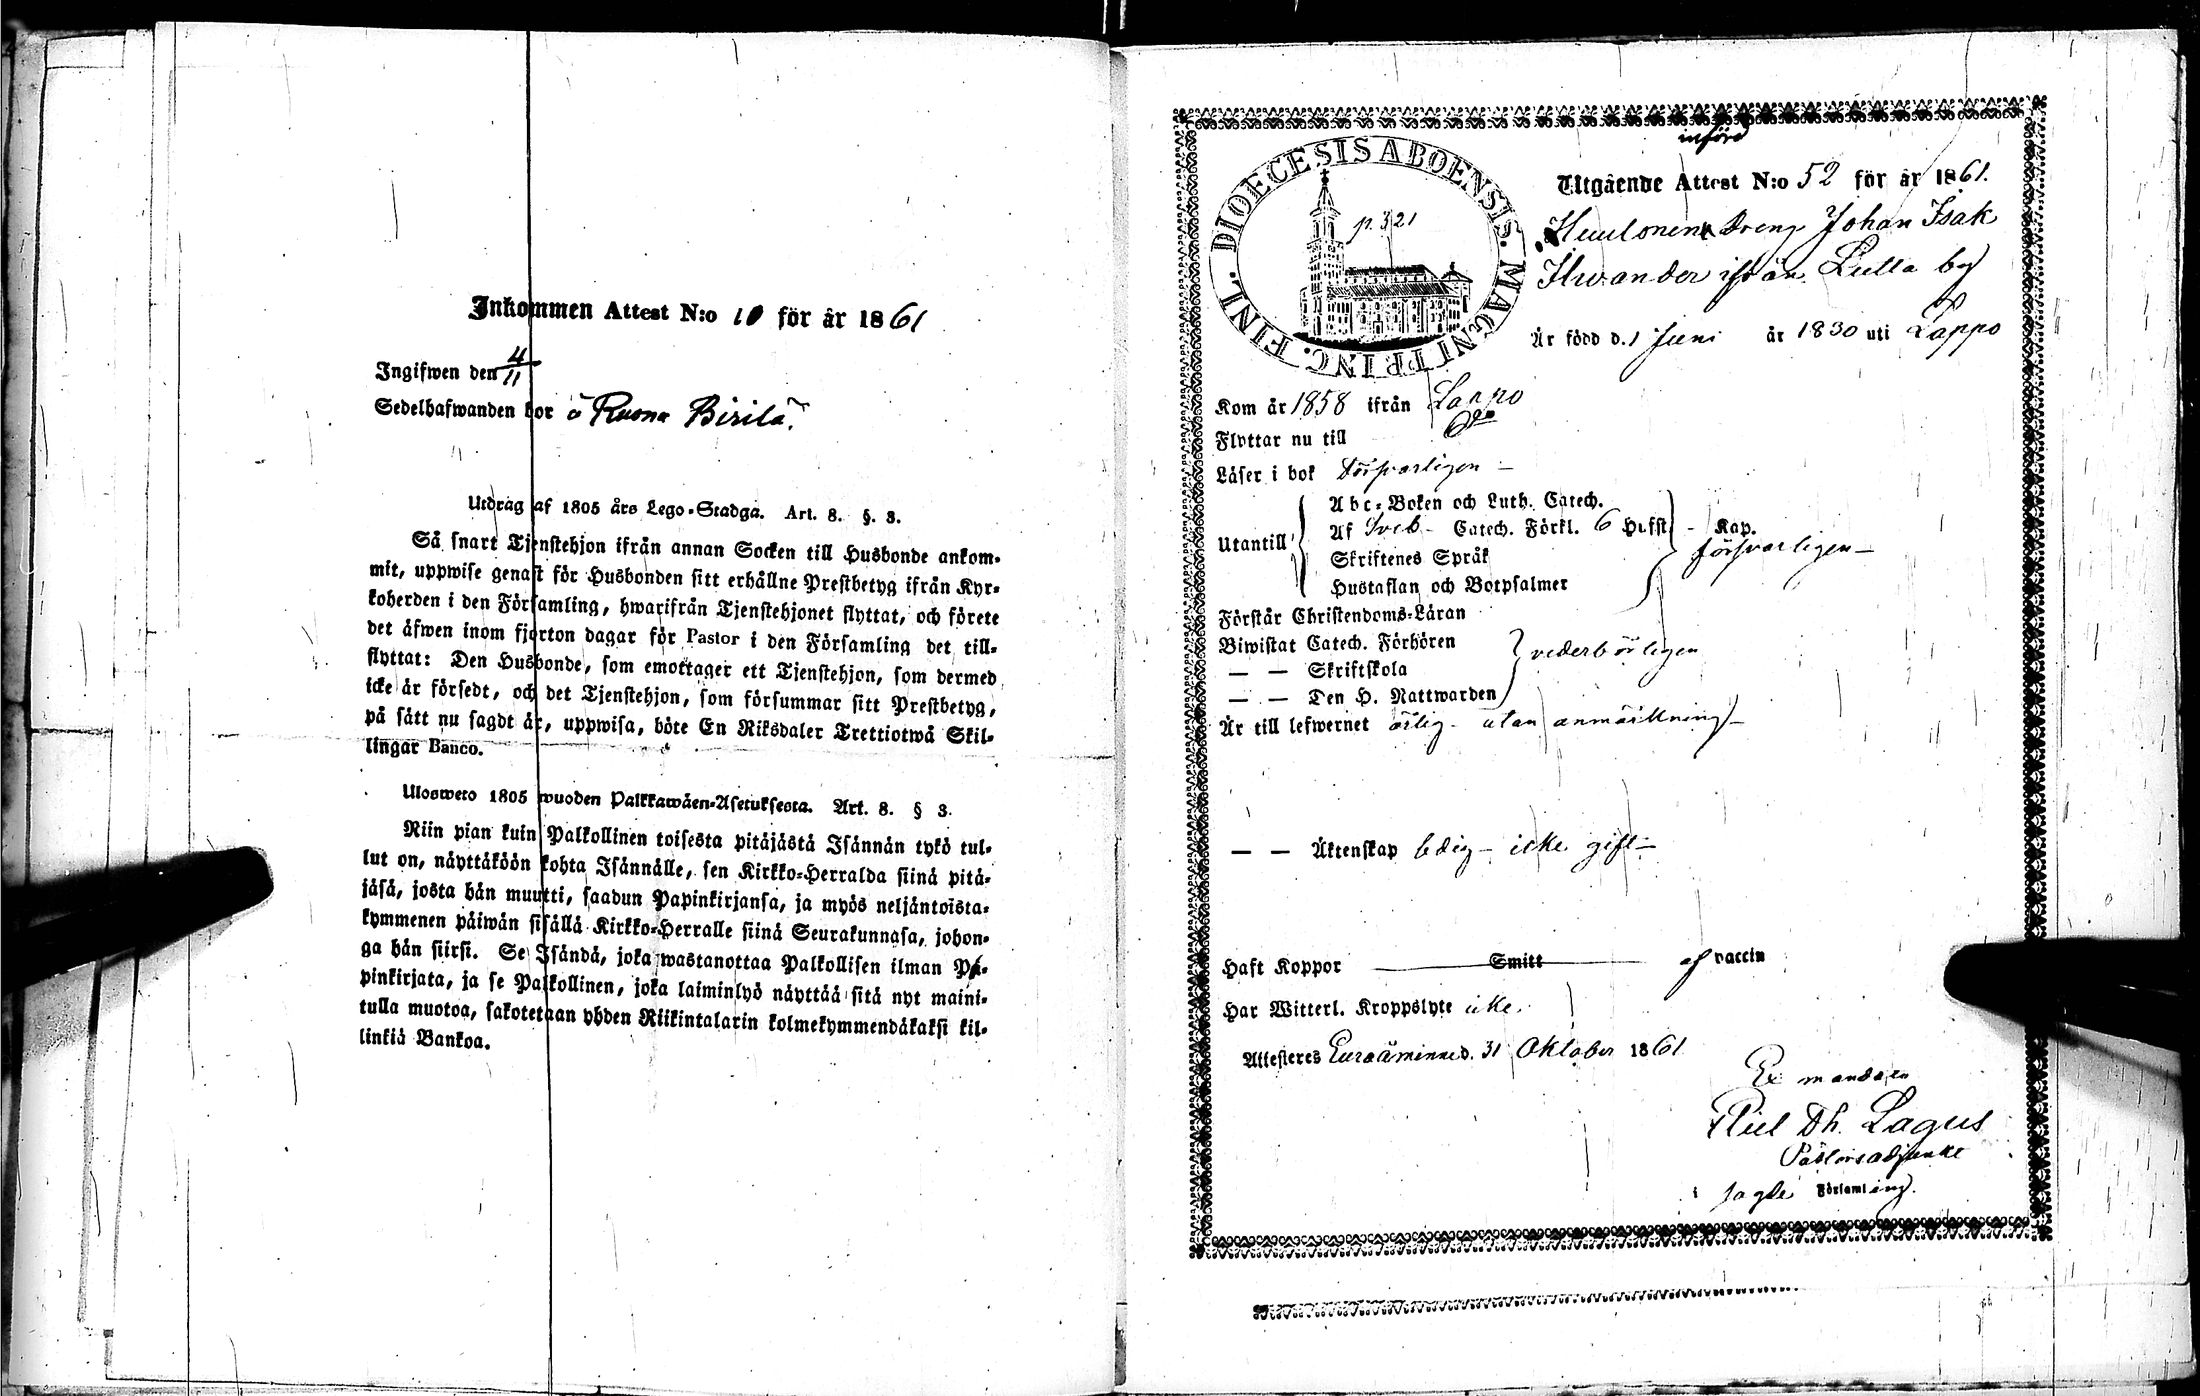 Inkommen Attest N:o 10 för år 1861
Ingifwen den 4/11
Sedelhafwanden bor å Ruona Birilä.
Utdrag af 1805 års Lego-Stadga. Art. 8. §. 3.
Så snart Tjenstehjon ifrån annan Socken till Husbonde ankom-
mit, uppwise genast för Husbonden sitt erhållne Prestbetyg ifrån Kyr-
koherden i den Församling, hwarifrån Tjenstehjonet flyttat, och förete
det äfwen inom fjorton dagar för Pastor i den Församling det till-
flyttat: Den Husbonde, som emottager ett Tjenstehjon, som dermed
icke är försedt, och det Tjenstehjon, som försummar sitt Prestbetyg,
på sätt nu sagdt är, uppwisa, böte En Riksdaler Trettiotwå Skil-
lingar Banco.
Ulosweto 1805 wuoden Palkkawäen-Asetuksesta. Art. 8. § 3.
Niin pian kuin Palkollinen toisesta pitäjästä Isännän tykö tul-
lut on, näyttäköön kohta Isännälle, sen Kirkko-Herralda siinä pitä-
jäsä, josta hän muutti, saadun Papinkirjansa, ja myös neljäntoista-
kymmenen päiwän sisällä Kirkko-Herralle siinä Seurakunnasa, johon-
ga hän siirsi. Se Isändä, joka wastanottaa Palkollisen ilman Pa-
pinkirjata, ja se Palkollinen, joka laiminlyö näyttää sitä nyt maini-
tulla muotoa, sakotetaan yhden Riikintalarin kolmekymmendäkaksi kil-
linkiä Bankoa.
införd
DIOECESIS ABOENSIS. MAGNI PRINC. FINL.
p. 321
Utgående Attest N:o 52 för år 1861.
Dreng Johan Isak
ifrån Lutta by
Är född d. 1 Juni år 1830 uti Lappo
Kom år 1858 ifrån Lappo
Flyttar nu till do
Läser i bok försvarligen –
Utantill
Abc-Boken och Luth. Catech.
Af Sveb – Catech. Förkl. 6 Hufst – Kap.
försvarligen –
Skriftenes Språk
Hustaflan och Botpsalmer
Förstår Christendoms-Läran
Biwistat Catech. Förhören
vederbörligen
— — Skriftskola
— — Den H. Nattwarden
Är till lefwernet ärlig – utan anmärkning –
— — Äktenskap ledig – icke gift –
Haft Koppor Smitt af vaccin
Har Witterl. Kroppslyte icke.
Attesteres Euraåminne d. 31 Oktober 1861
Ex mandato
Dh. Lagus
Pastorsadjunkt
i sagde Församling.